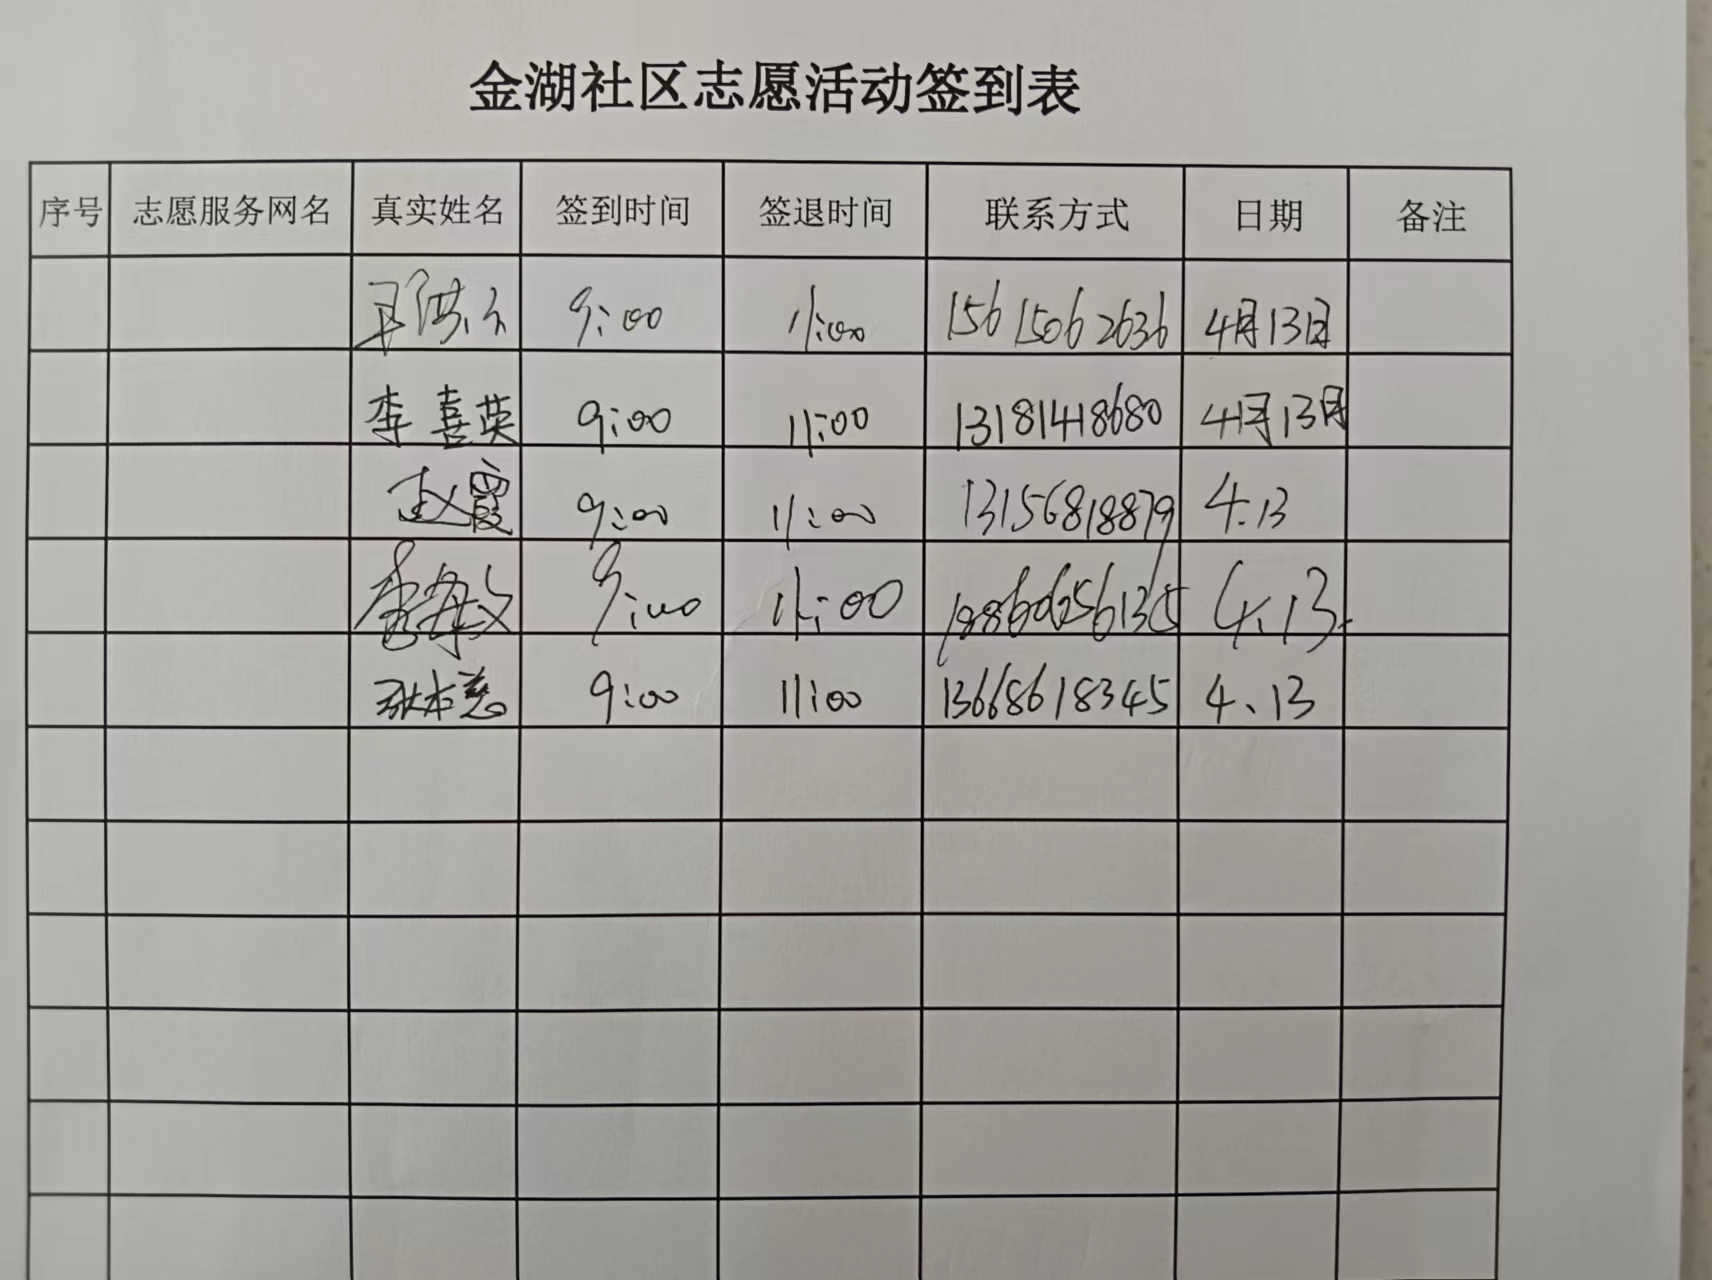 金湖社区志愿活动签到表
序号 志愿服务网名 真实姓名 签到时间 签退时间 联系方式 日期 备注
9:00 11:00 15615062636 4月13日
李喜英 9:00 11:00 13181418680 4月13日
赵霞 9:00 11:00 13156818879 4.13
9:00 11:00 18860656135 4.13.
9:00 11:00 13668618345 4、13